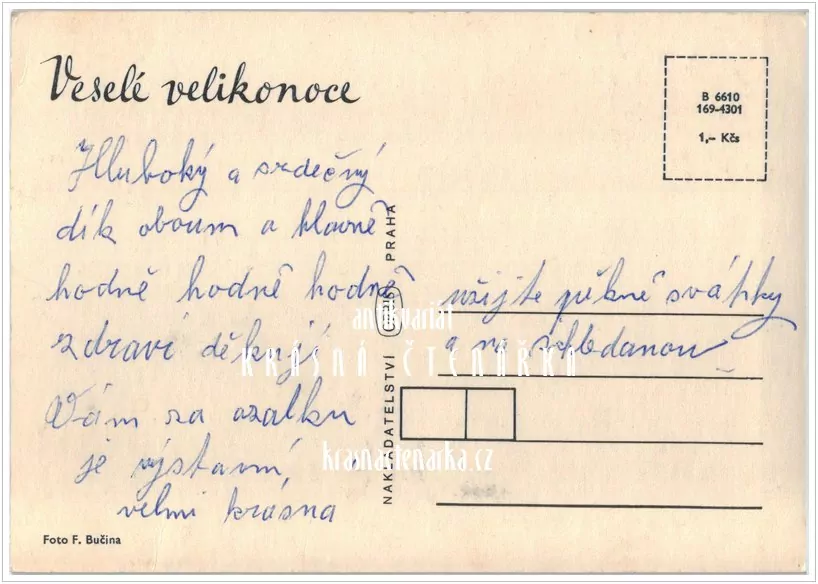 Veselé velikonoce
B 6610
169-4301
1,- Kčs
Hluboký a srdečný
dík oboum a hlavně
hodně hodně hodně
zdraví děkuji
Vám za azalku
je výstavní,
velmi krásna
užijte pěkné svátky
a na shledanou
NAKLADATELSTVÍ ORBIS PRAHA
antikvariát
KRÁSNÁ ČTENÁŘKA
krasnactenarka.cz
Foto F. Bučina